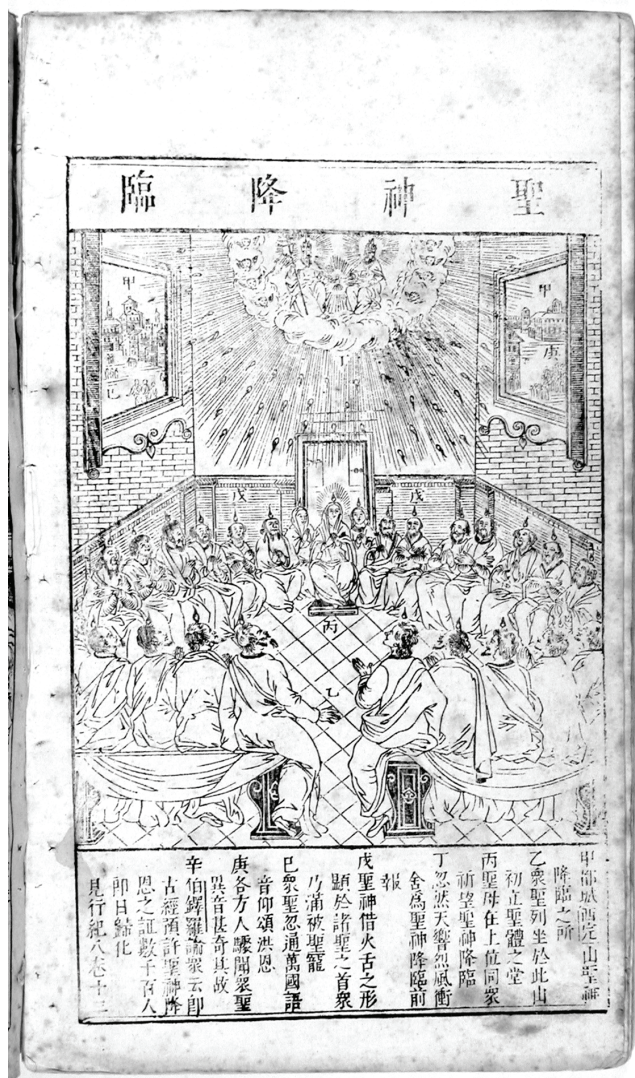 聖神降臨
甲
甲
庚
丁
戊
戊
丙
乙
甲都城西完山聖神
降臨之所
乙衆聖列坐於此山
初立聖體之堂
丙聖母在上位同衆
祈望聖神降臨
丁忽然天響烈風衝
舍爲聖神降臨前
報
戊聖神借火舌之形
顯於諸聖之首衆
乃滿被聖寵
己衆聖忽通萬國語
音仰頌洪恩
庚各方人驟聞衆聖
異音甚奇其故
辛伯鐸羅諭衆云卽
古經預許聖神降
恩之証數千百人
卽日歸化
見行紀八卷十三